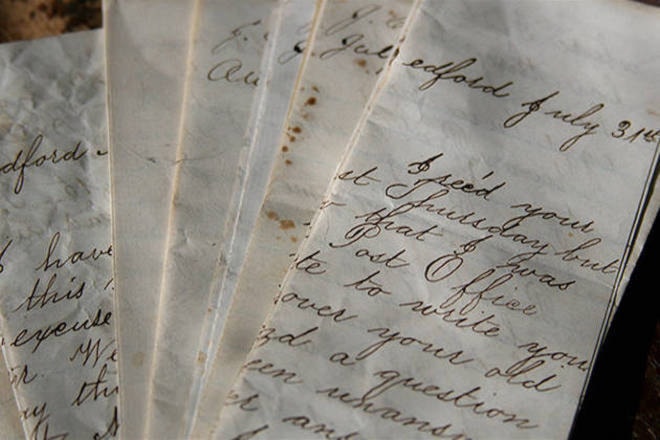 dford
I have
this
excuse
r. We
my th
J.
Au
J.
Jul
edford July 31st
I rec'd your
st Thursday but
that I was
Post Office
te to write you
over your old
nd a question
een unansw
er an